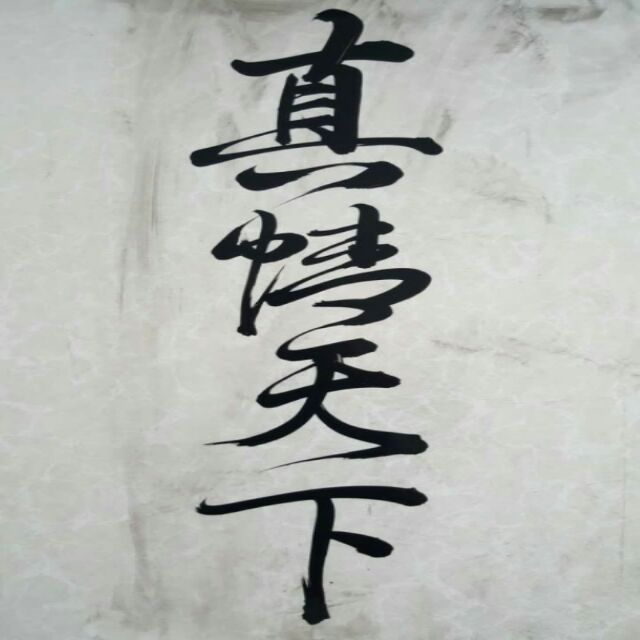 真情天下